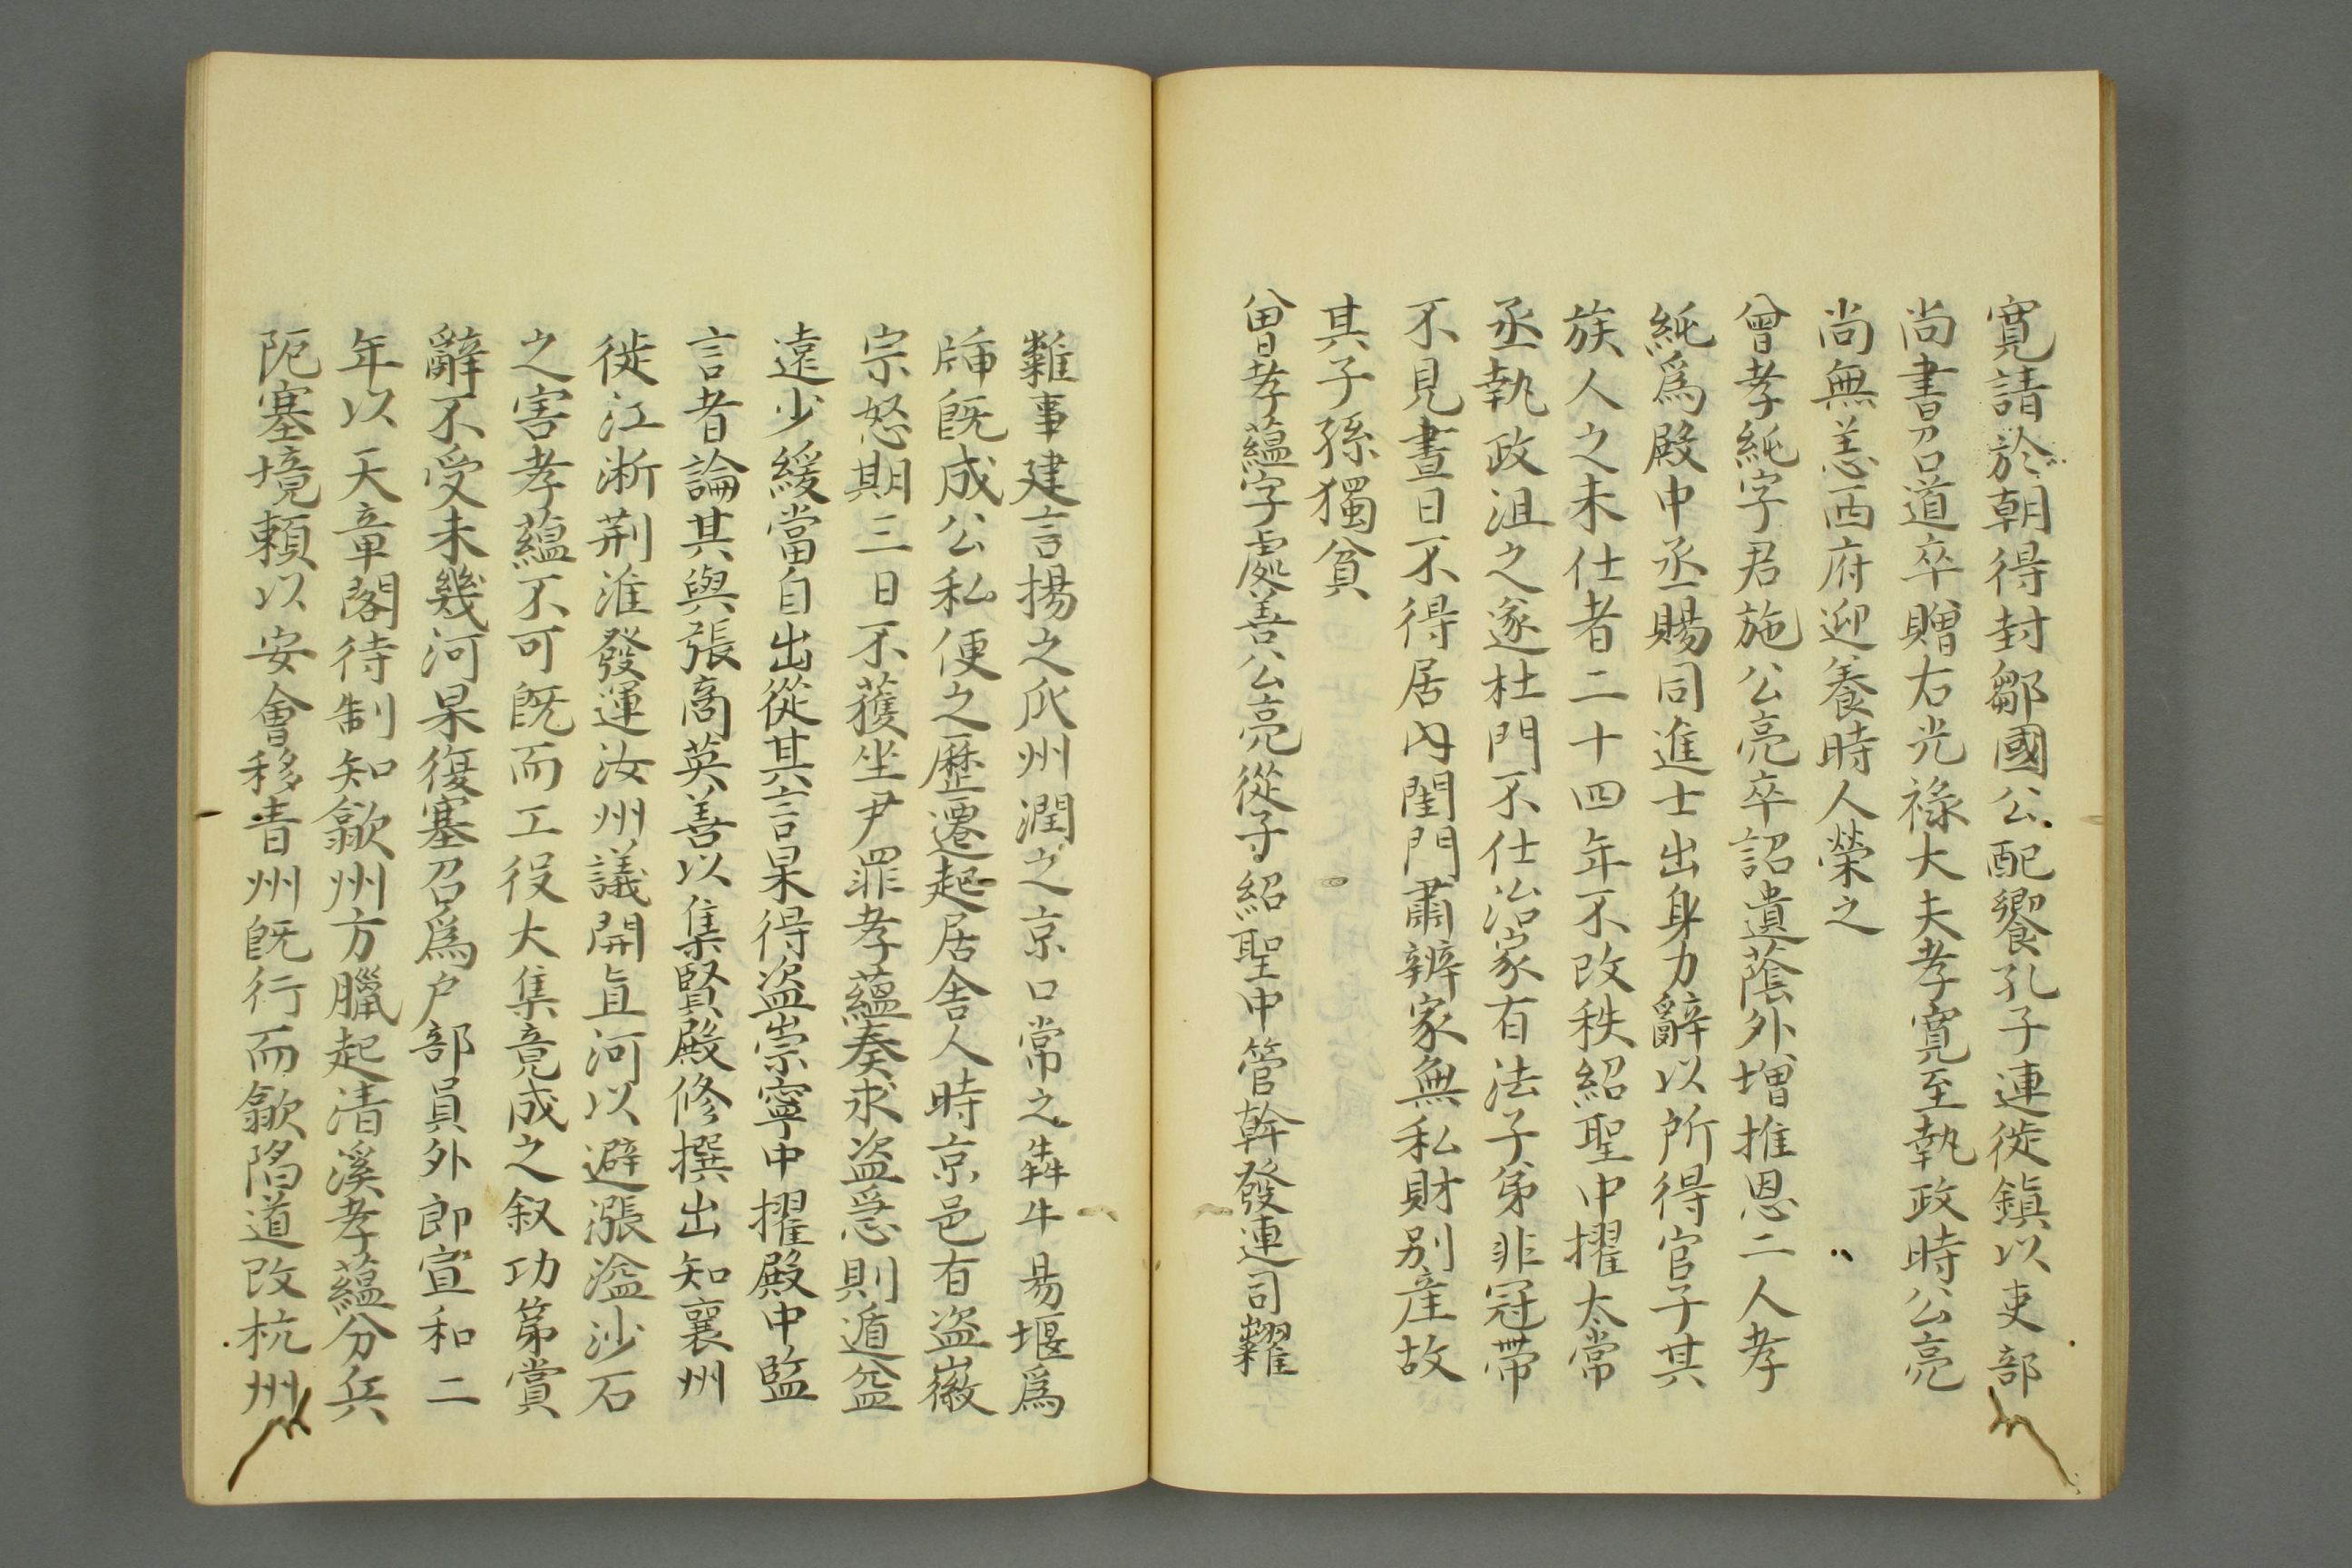 寬請於朝得封鄒國公配饗孔子連徙鎮以吏部
尚書召道卒贈右光祿大夫孝寬至執政時公亮
尚無恙西府迎養時人榮之
曾孝純字君施公亮卒詔遺蔭外增推恩二人孝
純爲殿中丞賜同進士出身力辭以所得官予其
族人之未仕者二十四年不改秩紹聖中擢太常
丞執政沮之遂杜門不仕治家有法子弟非冠帶
不見晝日不得居內閨門肅辨家無私財別產故
其子孫獨貧
曾孝蘊字處善公亮從子紹聖中管幹發運司糶
糴事建言揚之瓜州潤之京口常之犇牛易堰爲
牐既成公私便之歷遷起居舍人時京邑有盜徽
宗怒期三日不獲坐尹罪孝蘊奏求盜急則遁益
遠少緩當自出從其言果得盜崇寧中擢殿中監
言者論其與張商英善以集賢殿修撰出知襄州
徙江淅荆淮發運汝州議開直河以避漲溢沙石
之害孝蘊不可既而工役大集竟成之叙功第賞
辭不受未幾河果復塞召爲户部員外郎宣和二
年以天章閣待制知歙州方臘起清溪孝蘊分兵
阨塞境賴以安會移青州既行而歙陷道改杭州